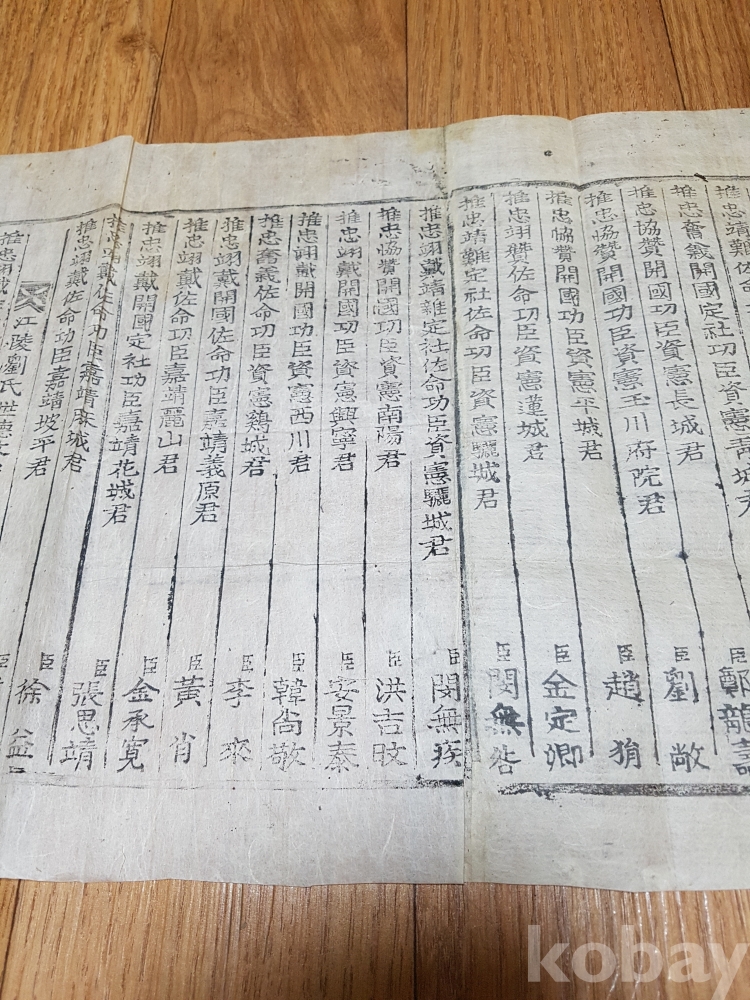 推忠靖難佐命功臣資憲青城君 臣鄭龍壽
推忠奮義開國定社功臣資憲長城君 臣劉敞
推忠協贊開國功臣資憲玉川府院君 臣趙狷
推忠協贊開國功臣資憲平城君 臣金定卿
推忠翊贊佐命功臣資憲蓮城君 臣閔無咎
推忠靖難定社佐命功臣資憲驪城君
推忠翊戴靖難定社佐命功臣資憲驪城君 臣閔無疾
推忠協贊開國功臣資憲南陽君 臣洪吉旼
推忠翊戴開國功臣資憲興寧君 臣安景泰
推忠翊戴開國功臣資憲西川君 臣韓尙敬
推忠奮義佐命功臣資憲鷄城君 臣李來
推忠翊戴開國佐命功臣嘉靖義原君 臣黃肖
推忠翊戴佐命功臣嘉靖麗山君 臣金承霔
推忠翊戴開國定社功臣嘉靖花城君 臣張思靖
推忠翊戴佐命功臣嘉靖城君 臣徐益
嘉靖坡平君
江陵劉氏世德
推忠翊戴
kobay